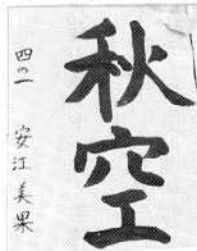 秋空
四の一 安江美果